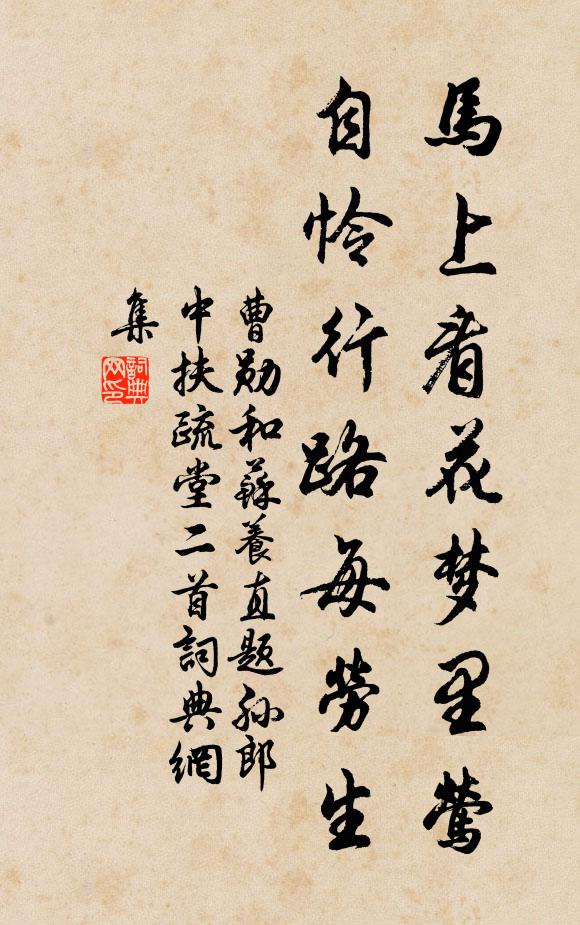 馬上看花梦里鶯
自怜行路每勞生
曹勋和蘇養直題孙郎
中扶疏堂二首詞典網
集
詞典
网印